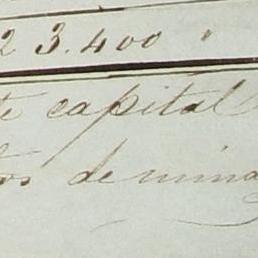 2 3.400 "
te capital
tos de mina